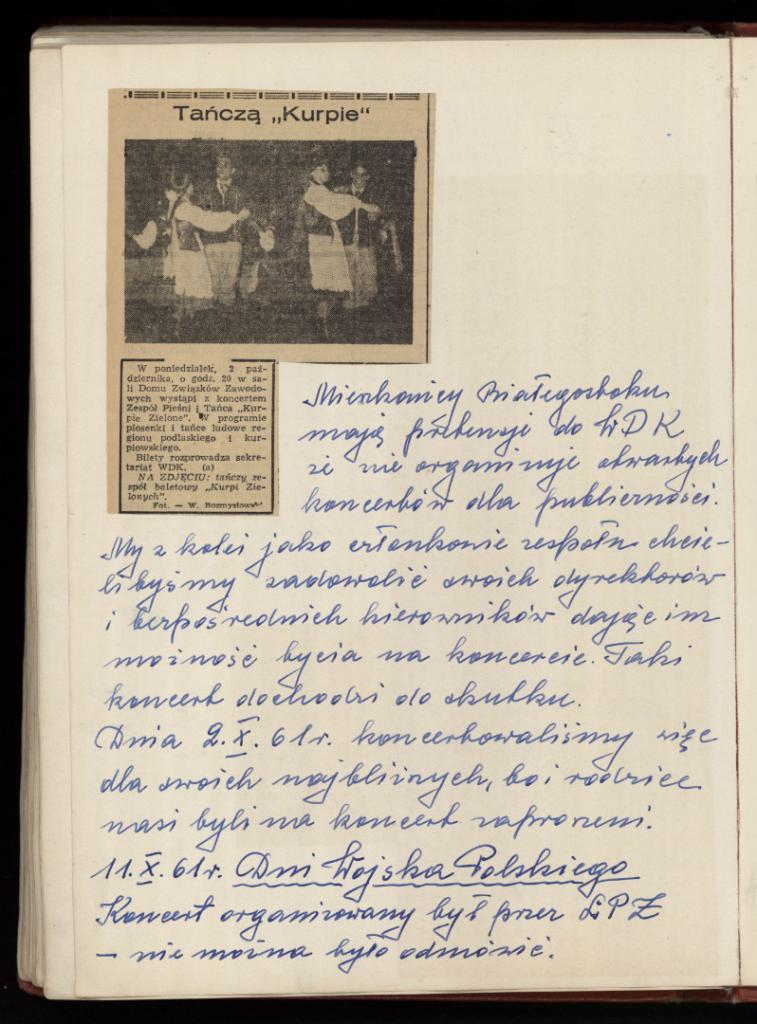 Tańczą „Kurpie“
W poniedziałek, 2 paź-
dziernika, o godz. 20 w sa-
li Domu Związków Zawodo-
wych wystąpi z koncertem
Zespół Pieśni i Tańca „Kur-
pie Zielone”. W programie
piosenki i tańce ludowe re-
gionu podlaskiego i kur-
piowskiego.
Bilety rozprowadza sekre-
tariat WDK. (a)
NA ZDJĘCIU: tańczy ze-
spół baletowy „Kurpi Zie-
lonych”.
Fot. — W. Rozmysłowski
Mieszkańcy Białegostoku
mają pretensje do WDK
że nie organizuje otwartych
koncertów dla publiczności.
My z kolei jako członkowie zespołu chcie-
libyśmy zadowolić swoich dyrektorów
i bezpośrednich kierowników dając im
możność bycia na koncercie. Taki
koncert dochodzi do skutku.
Dnia 2.X.61r. koncertowaliśmy więc
dla swoich najbliższych, bo i rodzice
nasi byli na koncert zaproszeni.
11.X.61r. Dni Wojska Polskiego
Koncert organizowany był przez LPŻ
– nie można było odmówić.